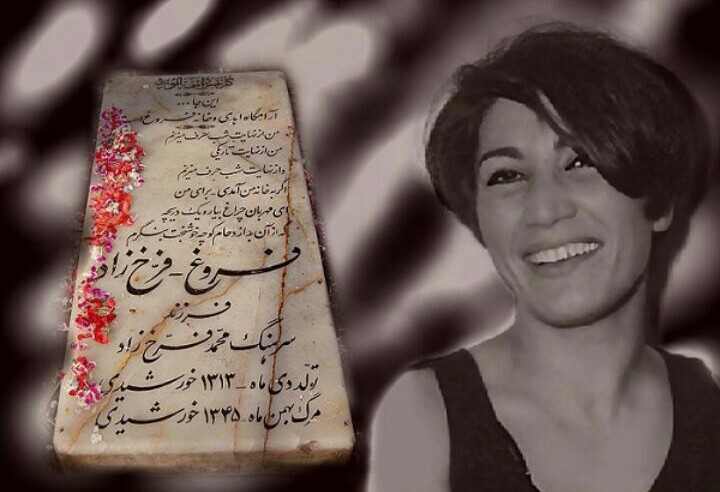 کل نفس ذائقة الموت
این جا ...
آرامگاه ابدی و خانه فروغ است
من از نهایت شب حرف میزنم
من از نهایت تاریکی
و از نهایت شب حرف میزنم
اگر به خانه من آمدی - برای من
ای مهربان چراغ بیار و یک دریچه
که از آن به ازدحام کوچه خوشبخت بنگرم
فروغ - فرّخ زاد
فرزند
سرهنگ محمّد فرّخ زاد
تولد دی ماه - ۱۳۱۳ خورشیدی
مرگ بهمن ماه - ۱۳۴۵ خورشیدی